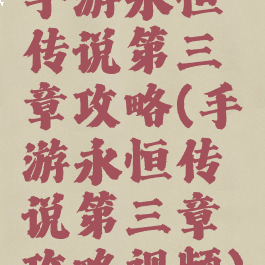 手游永恒
传说第三
章攻略(手
游永恒传
说第三章
攻略视频)